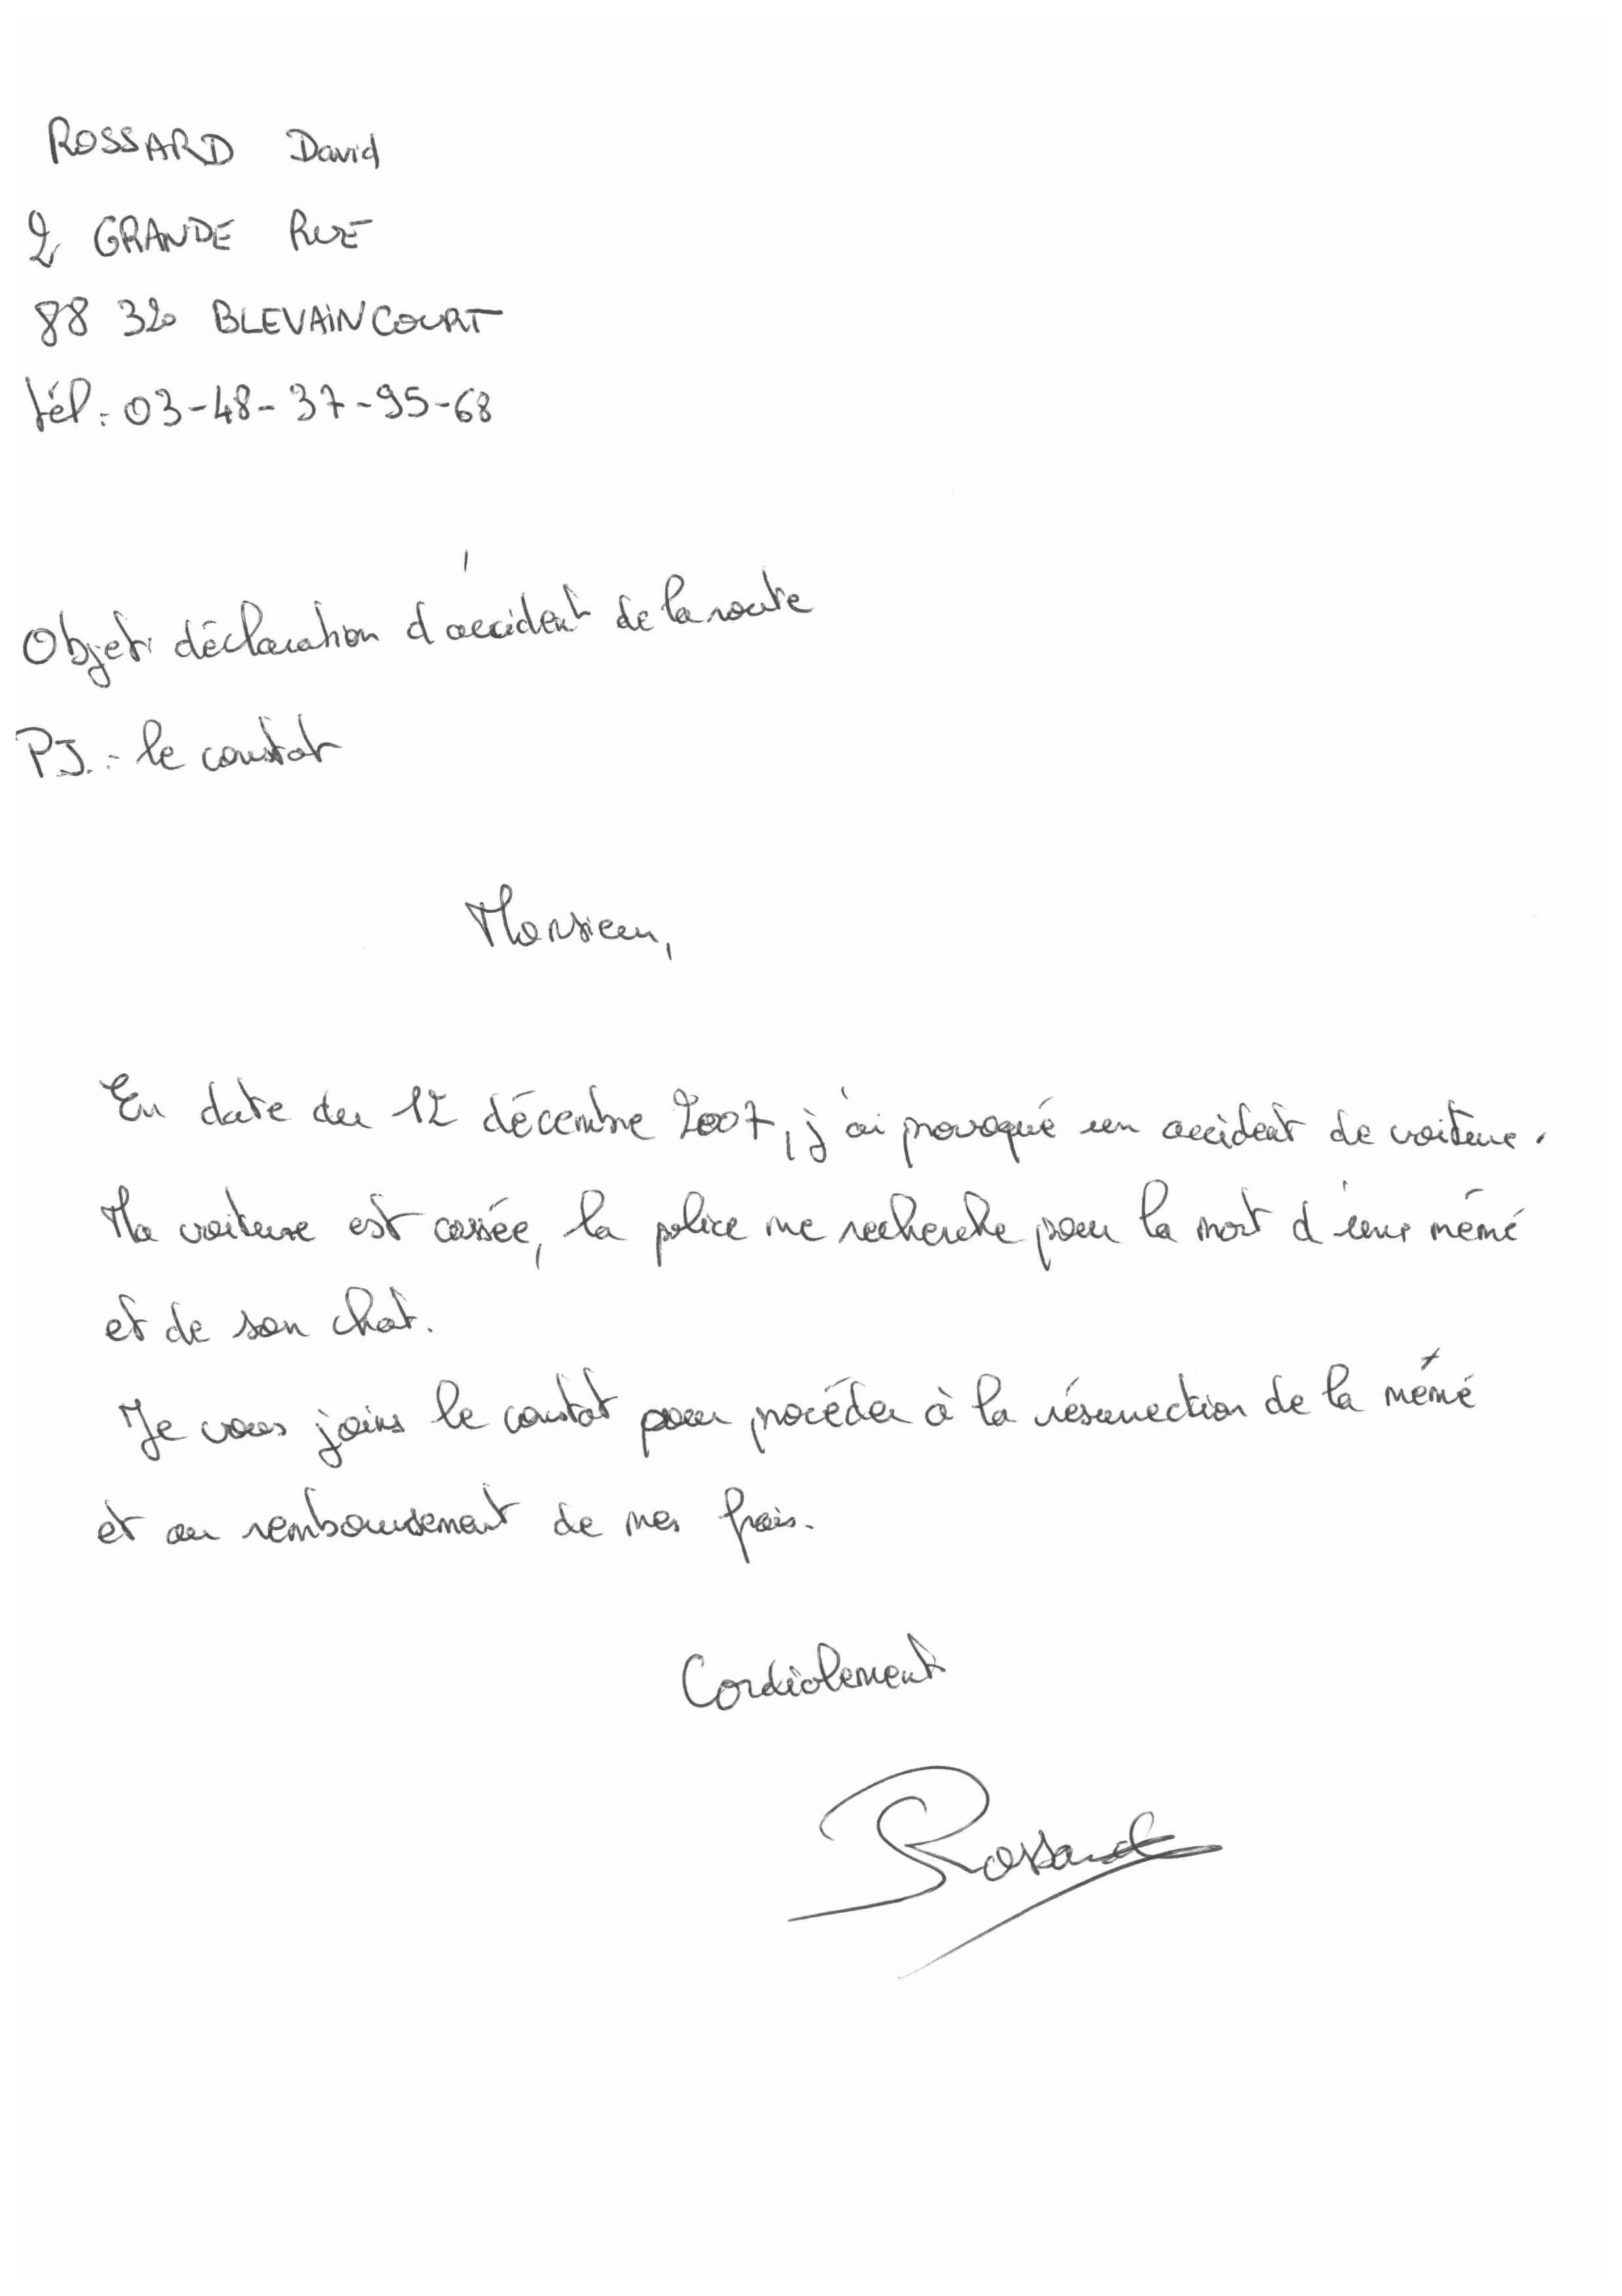 ROSSARD David
2 GRANDE RUE
88 320 BLEVAINCOURT
tél : 03-48-37-95-68
Objet : déclaration d'accident de la route
PJ : le constat
Monsieur,
En date du 12 décembre 2007, j'ai provoqué un accident de voiture.
Ma voiture est cassée, la police me recherche pour la mort d'une mémé
et de son chat.
Je vous joins le constat pour procéder à la résurrection de la mémé
et au remboursement de mes frais.
Cordialement
Rossard